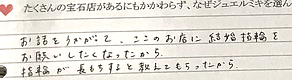 たくさんの宝石店があるにもかかわらず、なぜジュエルミキを選ん
お話をうかがって、ここのお店に結婚指輪を
お願いしたくなったから。
指輪が長もちすると教えてもらったから。